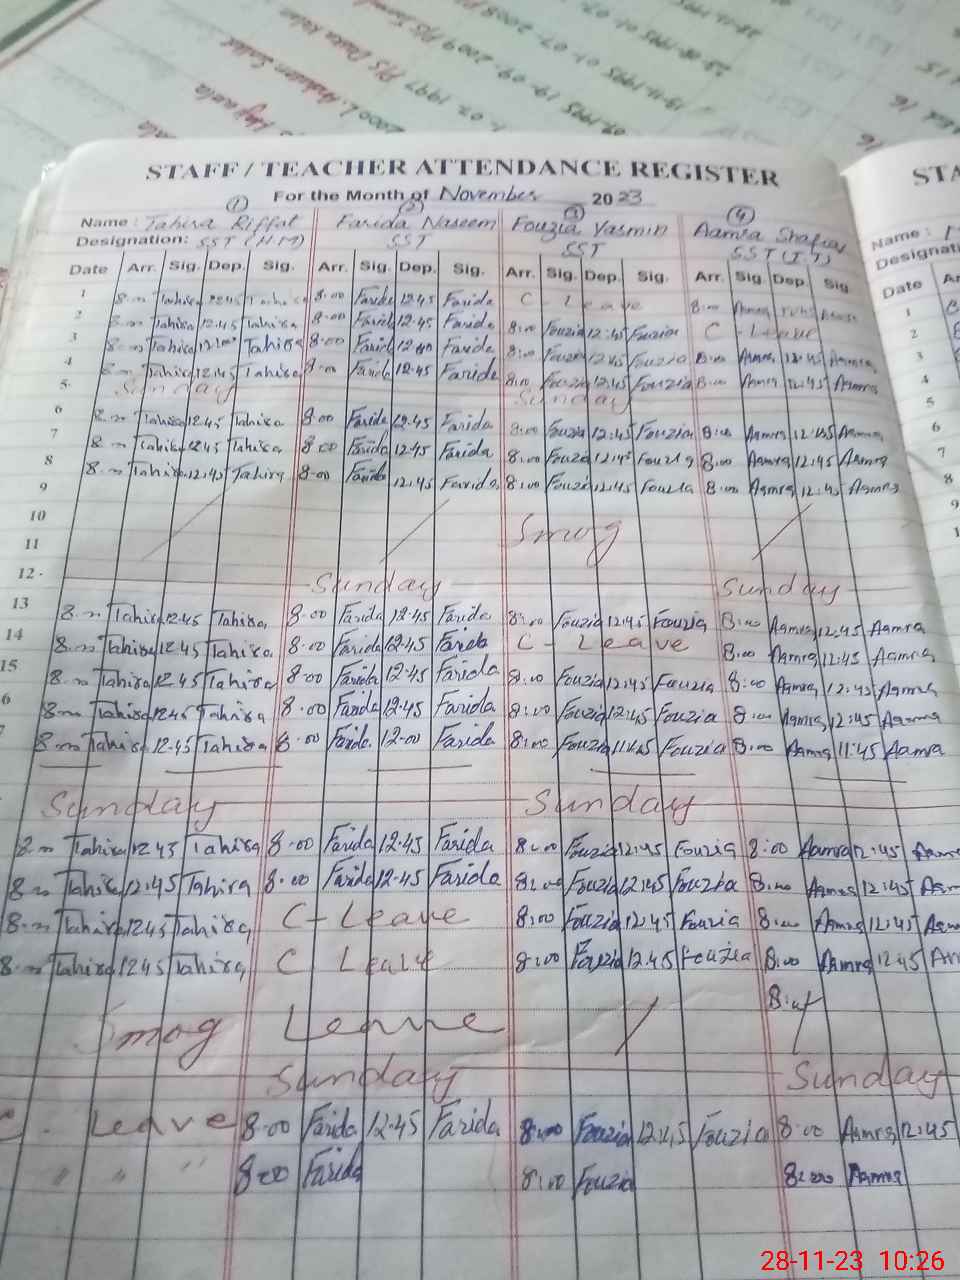 STAFF / TEACHER ATTENDANCE REGISTER
For the Month of November 2023
① ② ③ ④
Name : Tahira Riffat Farida Naseem Fouzia Yasmin Aamra Shafia
Designation: SST (H.M) SST SST SST (I.T)
Date Arr. Sig. Dep. Sig. Arr. Sig. Dep. Sig. Arr. Sig. Dep. Sig. Arr. Sig. Dep. Sig.
1 8.00 Tahira 12.45 Tahira 8.00 Farida 12.45 Farida C - Leave 8:00 Aamra
2 8.00 Tahira 12.45 Tahira 8.00 Farida 12.45 Farida 8:00 Fouzia 12:45 Fouzia C - Leave
3 8.00 Tahira Tahira 8.00 Farida Farida 8:00 Fouzia 12:45 Fouzia 8:00 Aamra 12:45 Aamra
4 8.00 Tahira 12.45 Tahira 8.00 Farida 12.45 Farida 8:00 Fouzia 12:45 Fouzia 8:00 Aamra 12:45 Aamra
5. Sunday Sunday
6 8.00 Tahira 12.45 Tahira 8.00 Farida 12.45 Farida 8:00 Fouzia 12:45 Fouzia 8:00 Aamra 12:45 Aamra
7 8.00 Tahira 12.45 Tahira 8.00 Farida 12.45 Farida 8:00 Fouzia 12:45 Fouzia 8:00 Aamra 12:45 Aamra
8 8.00 Tahira 12.45 Tahira 8.00 Farida 12.45 Farida 8:00 Fouzia 12:45 Fouzia 8:00 Aamra 12:45 Aamra
9
10 Smog
11
12 Sunday Sunday
13 8.00 Tahira 12.45 Tahira 8.00 Farida 12.45 Farida 8:00 Fouzia 12:45 Fouzia 8:00 Aamra 12:45 Aamra
14 8.00 Tahira 12.45 Tahira 8.00 Farida 12.45 Farida C - Leave 8:00 Aamra 12:45 Aamra
15 8.00 Tahira 12.45 Tahira 8.00 Farida 12.45 Farida 8:00 Fouzia 12:45 Fouzia 8:00 Aamra 12:45 Aamra
6 8.00 Tahira 12.45 Tahira 8.00 Farida 12.45 Farida 8:00 Fouzia 12:45 Fouzia 8:00 Aamra 12:45 Aamra
8.00 Tahira 12.45 Tahira 8.00 Farida 12.00 Farida 8:00 Fouzia 11:45 Fouzia 8:00 Aamra 11:45 Aamra
Sunday Sunday
8.00 Tahira 12.45 Tahira 8.00 Farida 12.45 Farida 8:00 Fouzia 12:45 Fouzia 8:00 Aamra 12:45
8.00 Tahira 12.45 Tahira 8.00 Farida 12.45 Farida 8:00 Fouzia 12:45 Fouzia 8:00 Aamra 12:45
8.00 Tahira 12.45 Tahira C - Leave 8:00 Fouzia 12:45 Fouzia 8:00 Aamra 12:45
8.00 Tahira 12.45 Tahira C Leave 8:00 Fouzia 12.45 Fouzia 8:00 Aamra 12:45
Smog Leave
Sunday Sunday
C. Leave 8.00 Farida 12.45 Farida 8:00 Fouzia 12:45 Fouzia 8:00 Aamra 12:45
" " " 8.00 Farida 8:00 Fouzia 8:00 Aamra
28-11-23 10:26